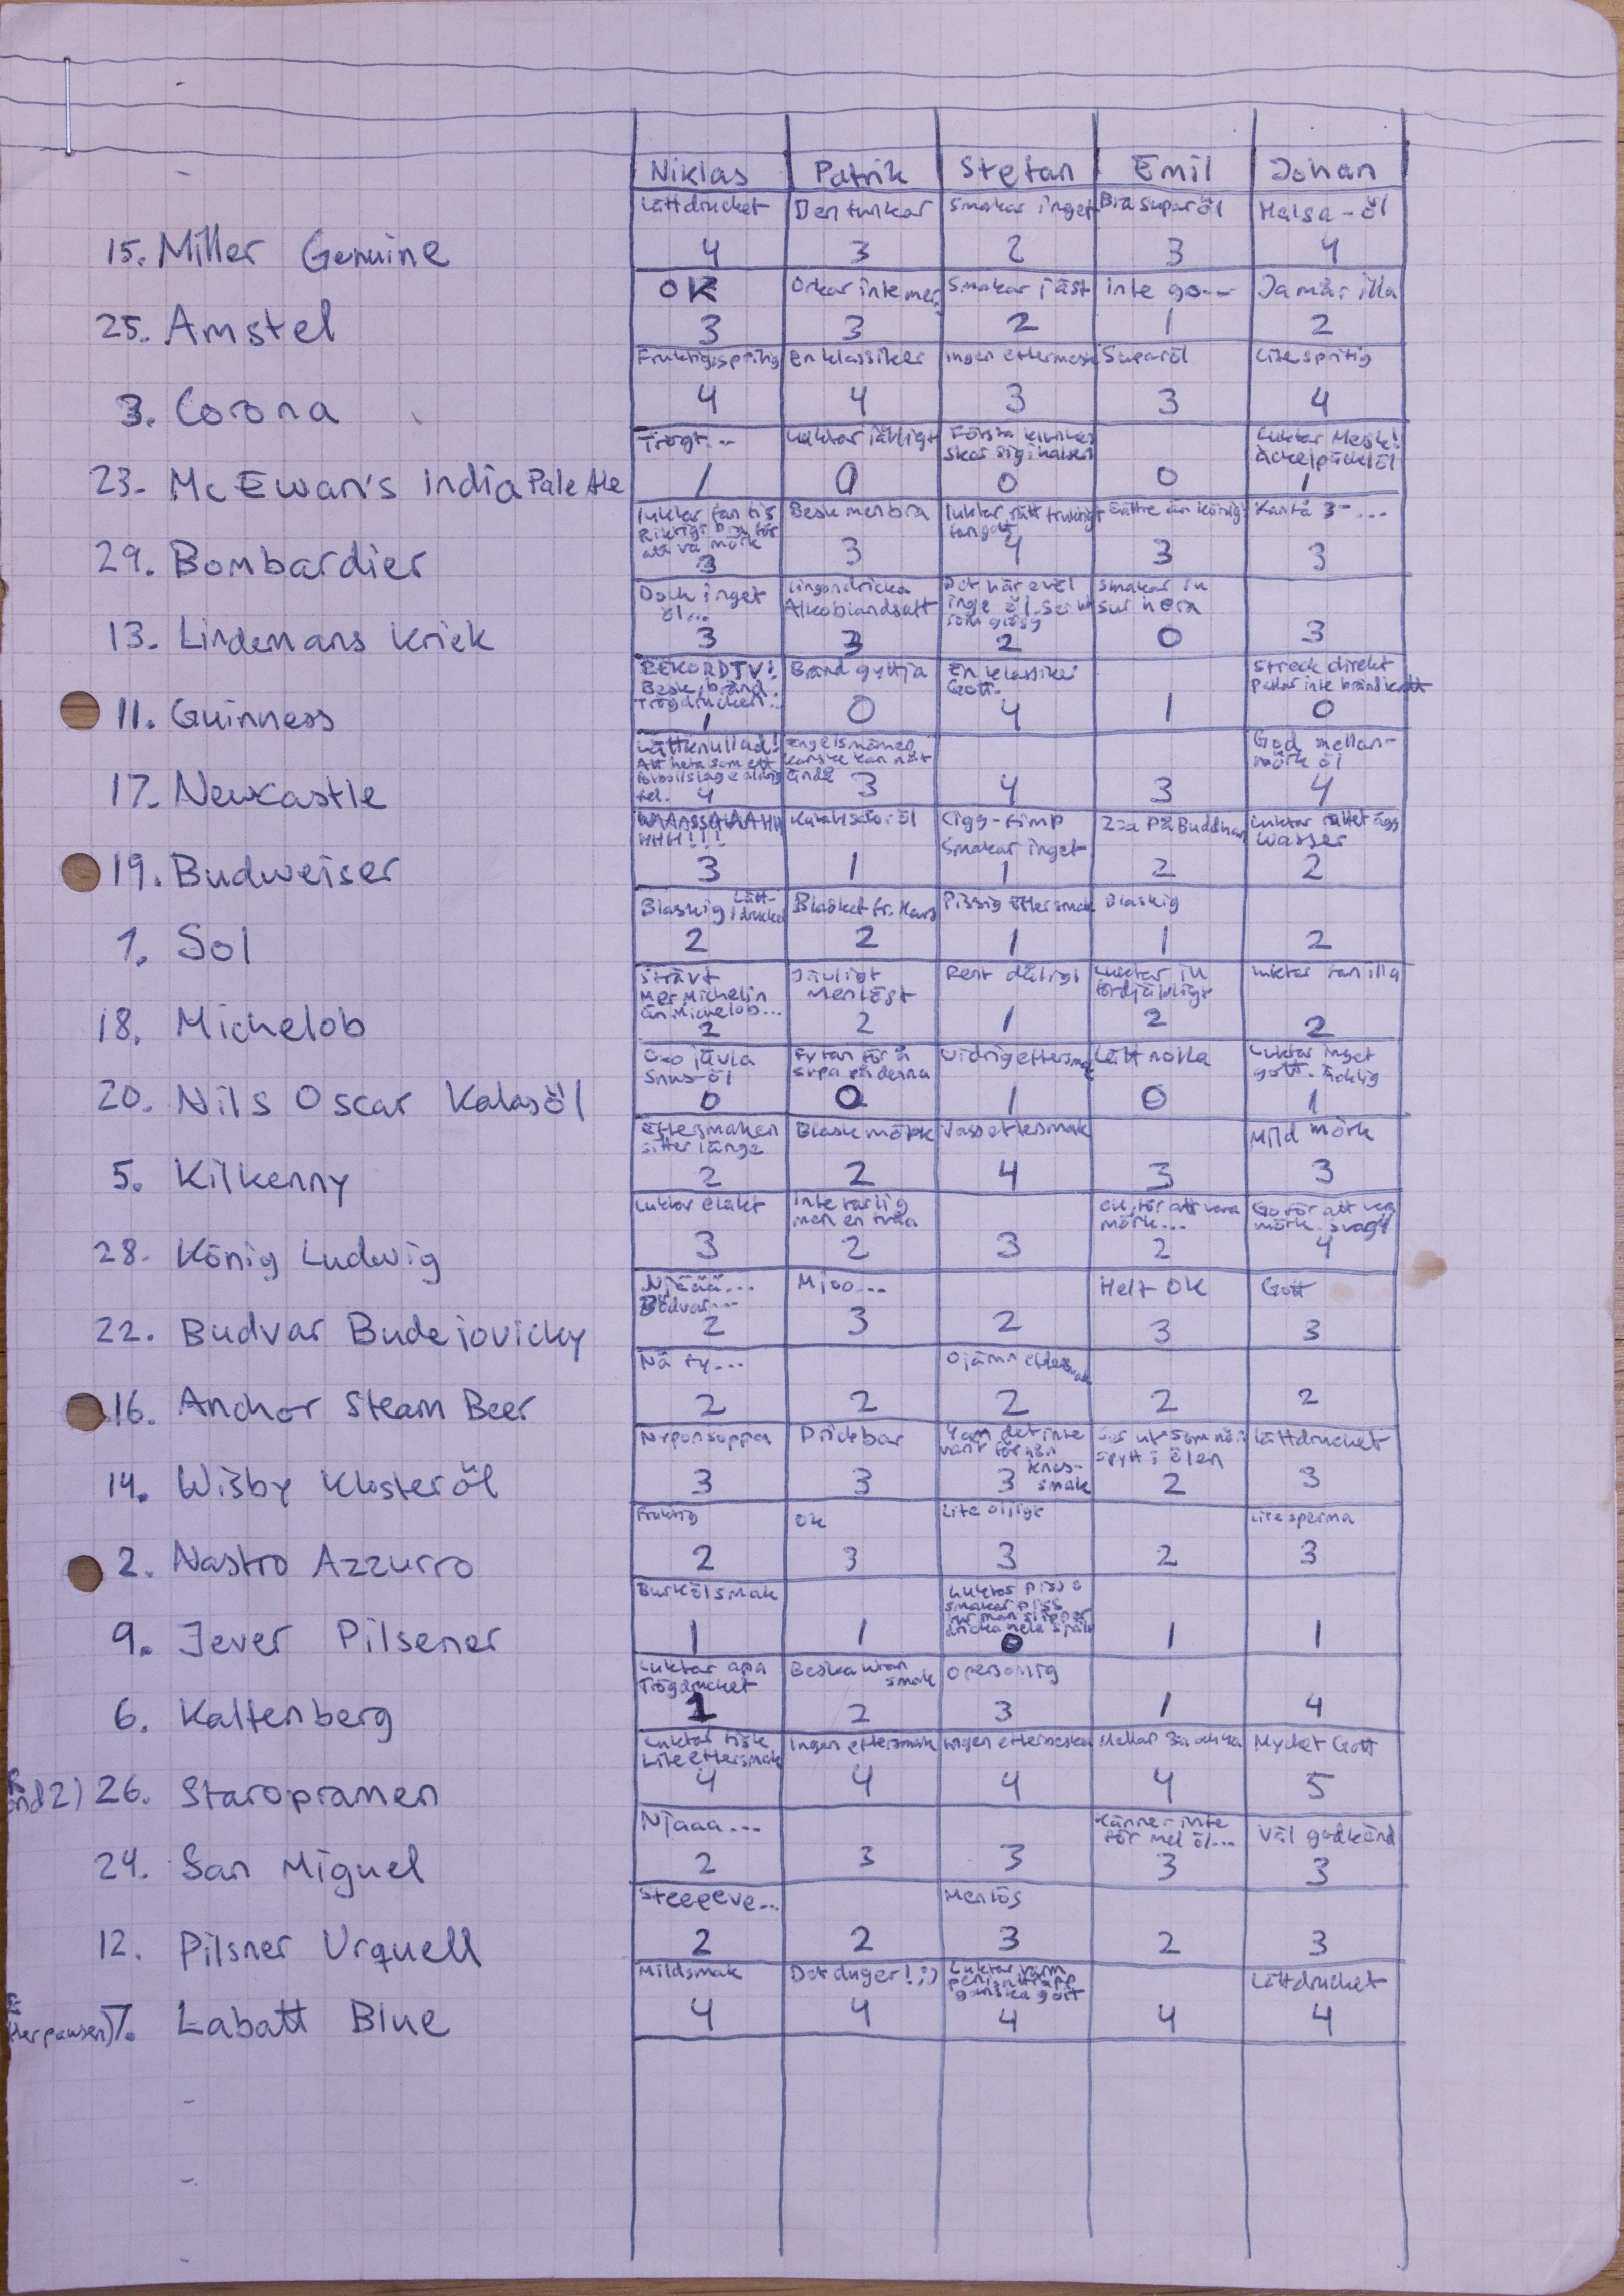 Niklas Patrik Stefan Emil Johan
Lättdrucket Den funkar Smakar inget Bra suparöl Hälsa-öl
15. Miller Genuine 4 3 2 3 4
OK Orkar inte mer Smakar jäst inte go... Ja mår illa
25. Amstel 3 3 2 1 2
Fruktig, spritig En klassiker ingen eftersmak Suparöl Lite spritig
3. Corona 4 4 3 3 4
Trögt... Luktar jävligt Första Luktar Mesk!
skär sig i halsen Äckelpäckel öl
23. Mc Ewan's India Pale Ale 1 0 0 0 1
Luktar fan fis Besk men bra Luktar rätt fruktigt Bättre än König Kanta 3-...
Riktigt bra för fan gott
att va mörk
29. Bombardier 3 3 4 3 3
Dock inget Lingondricka Det här e väl smakar ju
öl... Alkoblandsaft inge öl. Ser ut sur
som glögg
13. Lindemans Kriek 3 3 2 0 3
REKORDTV: Bränd gyttja En klassiker Streck direkt
Besk, bränd. Gott. Pallar inte bränd
Trögdrucken...
11. Guinness 1 0 4 1 0
Lättknullad! Engelsmännen God mellan-
Att heta som ett kanske kan nåt mörk öl
fotbollslag e aldrig ändå
fel.
17. Newcastle 4 3 4 3 4
WAAASSAAAAHH öl Cigg-fimp 2:a på Luktar ruttet ägg
HHH!!! Smakar inget Wasser
19. Budweiser 3 1 1 2 2
Blaskig Lätt- Blasket fr. Pissig eftersmak Blaskig
drucket
1. Sol 2 2 1 1 2
Strävt Jävligt Rent dåligt Luktar ju luktar fan illa
Mer Michelin menlöst fördjävligt
än Michelob...
18. Michelob 2 2 1 2 2
jävla Fy fan för å Vidrig eftersmak Lätt nolla Luktar inget
Snus-öl supa på denna gott. Äcklig
20. Nils Oscar Kalasöl 0 0 1 0 1
Eftersmaken Blask mörk Vass eftersmak Mild mörk
sitter länge
5. Kilkenny 2 2 4 3 3
Luktar elakt Inte farlig OK, för att vara Go för att vara
men en tvåa mörk... mörk. svagt
28. König Ludwig 3 2 3 2 4
Njäää... Mjoo... Helt OK Gott
Bödvar...
22. Budvar Budejovicky 2 3 2 3 3
Nä fy... Ojämn eftersmak
16. Anchor Steam Beer 2 2 2 2 2
Nyponsoppa Drickbar det inte Ser ut som nån Lättdrucket
varit för nån spytt i ölen
smak
14. Wisby Klosteröl 3 3 3 2 3
Fruktig OK Lite oljigt Lite sperma
2. Nastro Azzurro 2 3 3 2 3
Burkölsmak Luktar piss o
smakar piss
hur man slipper
dricka hela själv
9. Jever Pilsener 1 1 0 1 1
Luktar apa Beska utan Opersonlig
Trögdrucket smak
6. Kaltenberg 1 2 3 1 4
Luktar fisk Ingen eftersmak ingen efterbeska Mellan 3a och 4a Mycket Gott
Lite eftersmak
26. Staropramen 4 4 4 4 5
Njaaa... Känner inte Väl godkänd
för mel öl...
24. San Miguel 2 3 3 3 3
Steeeeve... Menlös
12. Pilsner Urquell 2 2 3 2 3
Mildsmak Det duger! ;) Luktar varm Lättdrucket
ganska gott
7. Labatt Blue 4 4 4 4 4